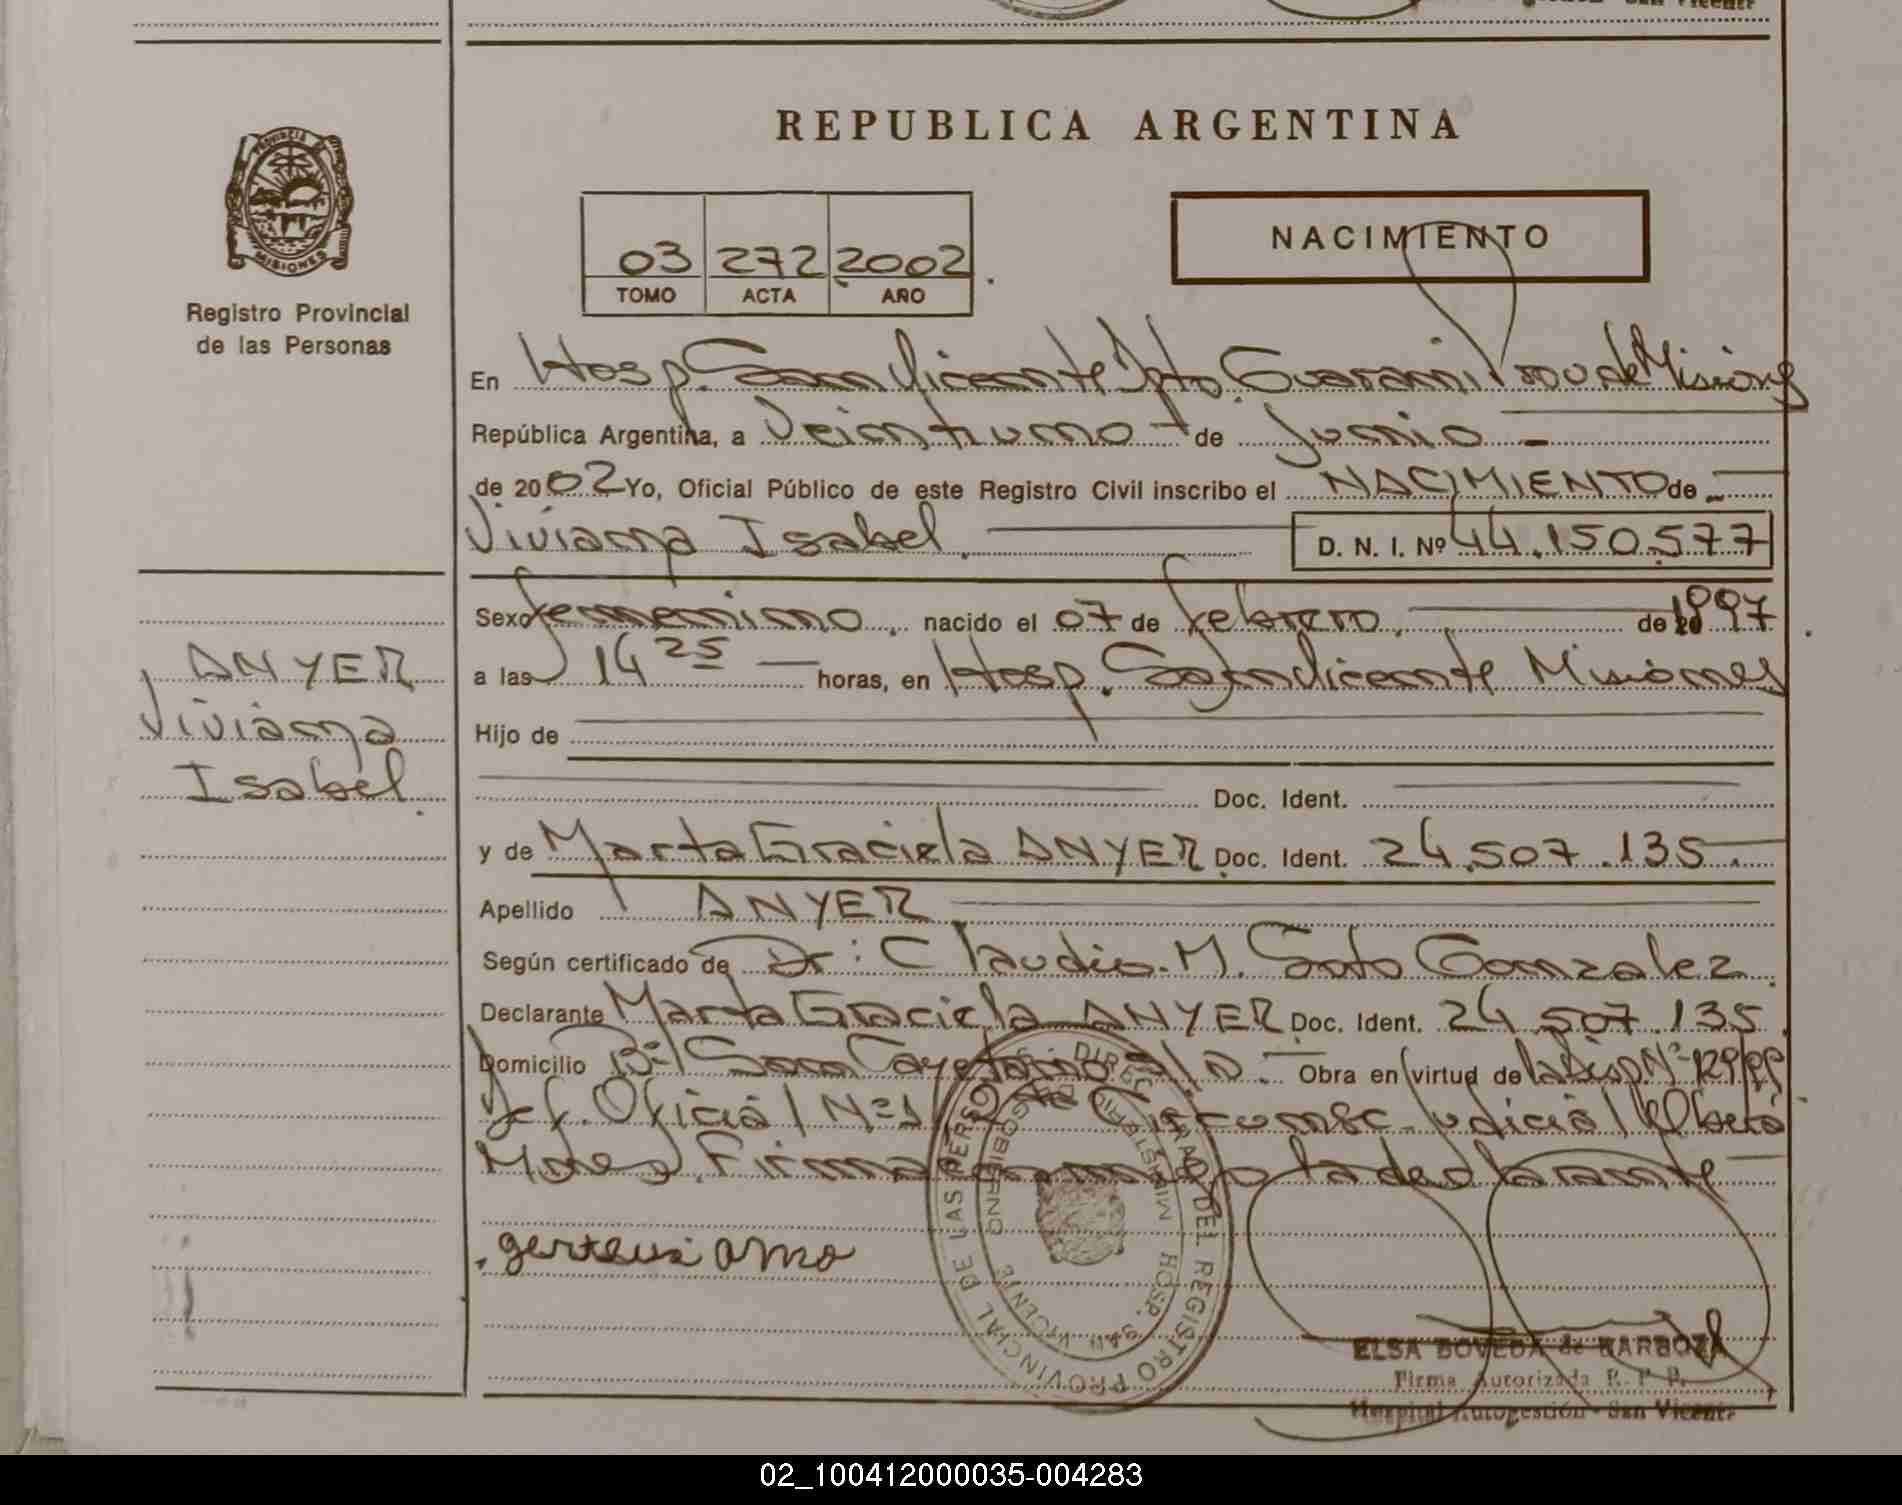 REPUBLICA ARGENTINA
PROVINCIA
MISIONES
Registro Provincial
de las Personas
03 272 2002
TOMO ACTA AÑO
NACIMIENTO
En Hosp. San Vicente Dpto. Guarani Prov de Misiones
República Argentina, a Veintiuno de Junio
de 2002 Yo, Oficial Público de este Registro Civil inscribo el NACIMIENTO de
Viviana Isabel. D. N. I. Nº 44.150.577
Sexo femenino, nacido el 07 de febrero, de 1997
a las 14 25 horas, en Hosp. San Vicente Misiones
Hijo de
Doc. Ident.
y de Marta Graciela ANYER Doc. Ident. 24.507.135
Apellido ANYER
Según certificado de Dr: Claudio M. Soto Gonzalez
Declarante Marta Graciela ANYER Doc. Ident. 24.507.135
Domicilio Bº San Cayetano S/D. Obra en virtud de la Disp. Nº 129/99
Def. Oficial Nº 1 Circunsc. Judicial Oberá
Mnes. Firma conmigo la declarante
ANYER
Viviana
Isabel.
DIRECCION GRAL DEL REGISTRO PROVINCIAL DE LAS PERSONAS
MINISTERIO DE GOBIERNO
HOSP. SAN VICENTE
ELSA BOVEDA de BARBOZA
Firma Autorizada R. P. P.
Hospital Autogestión - San Vicente
02_100412000035-004283